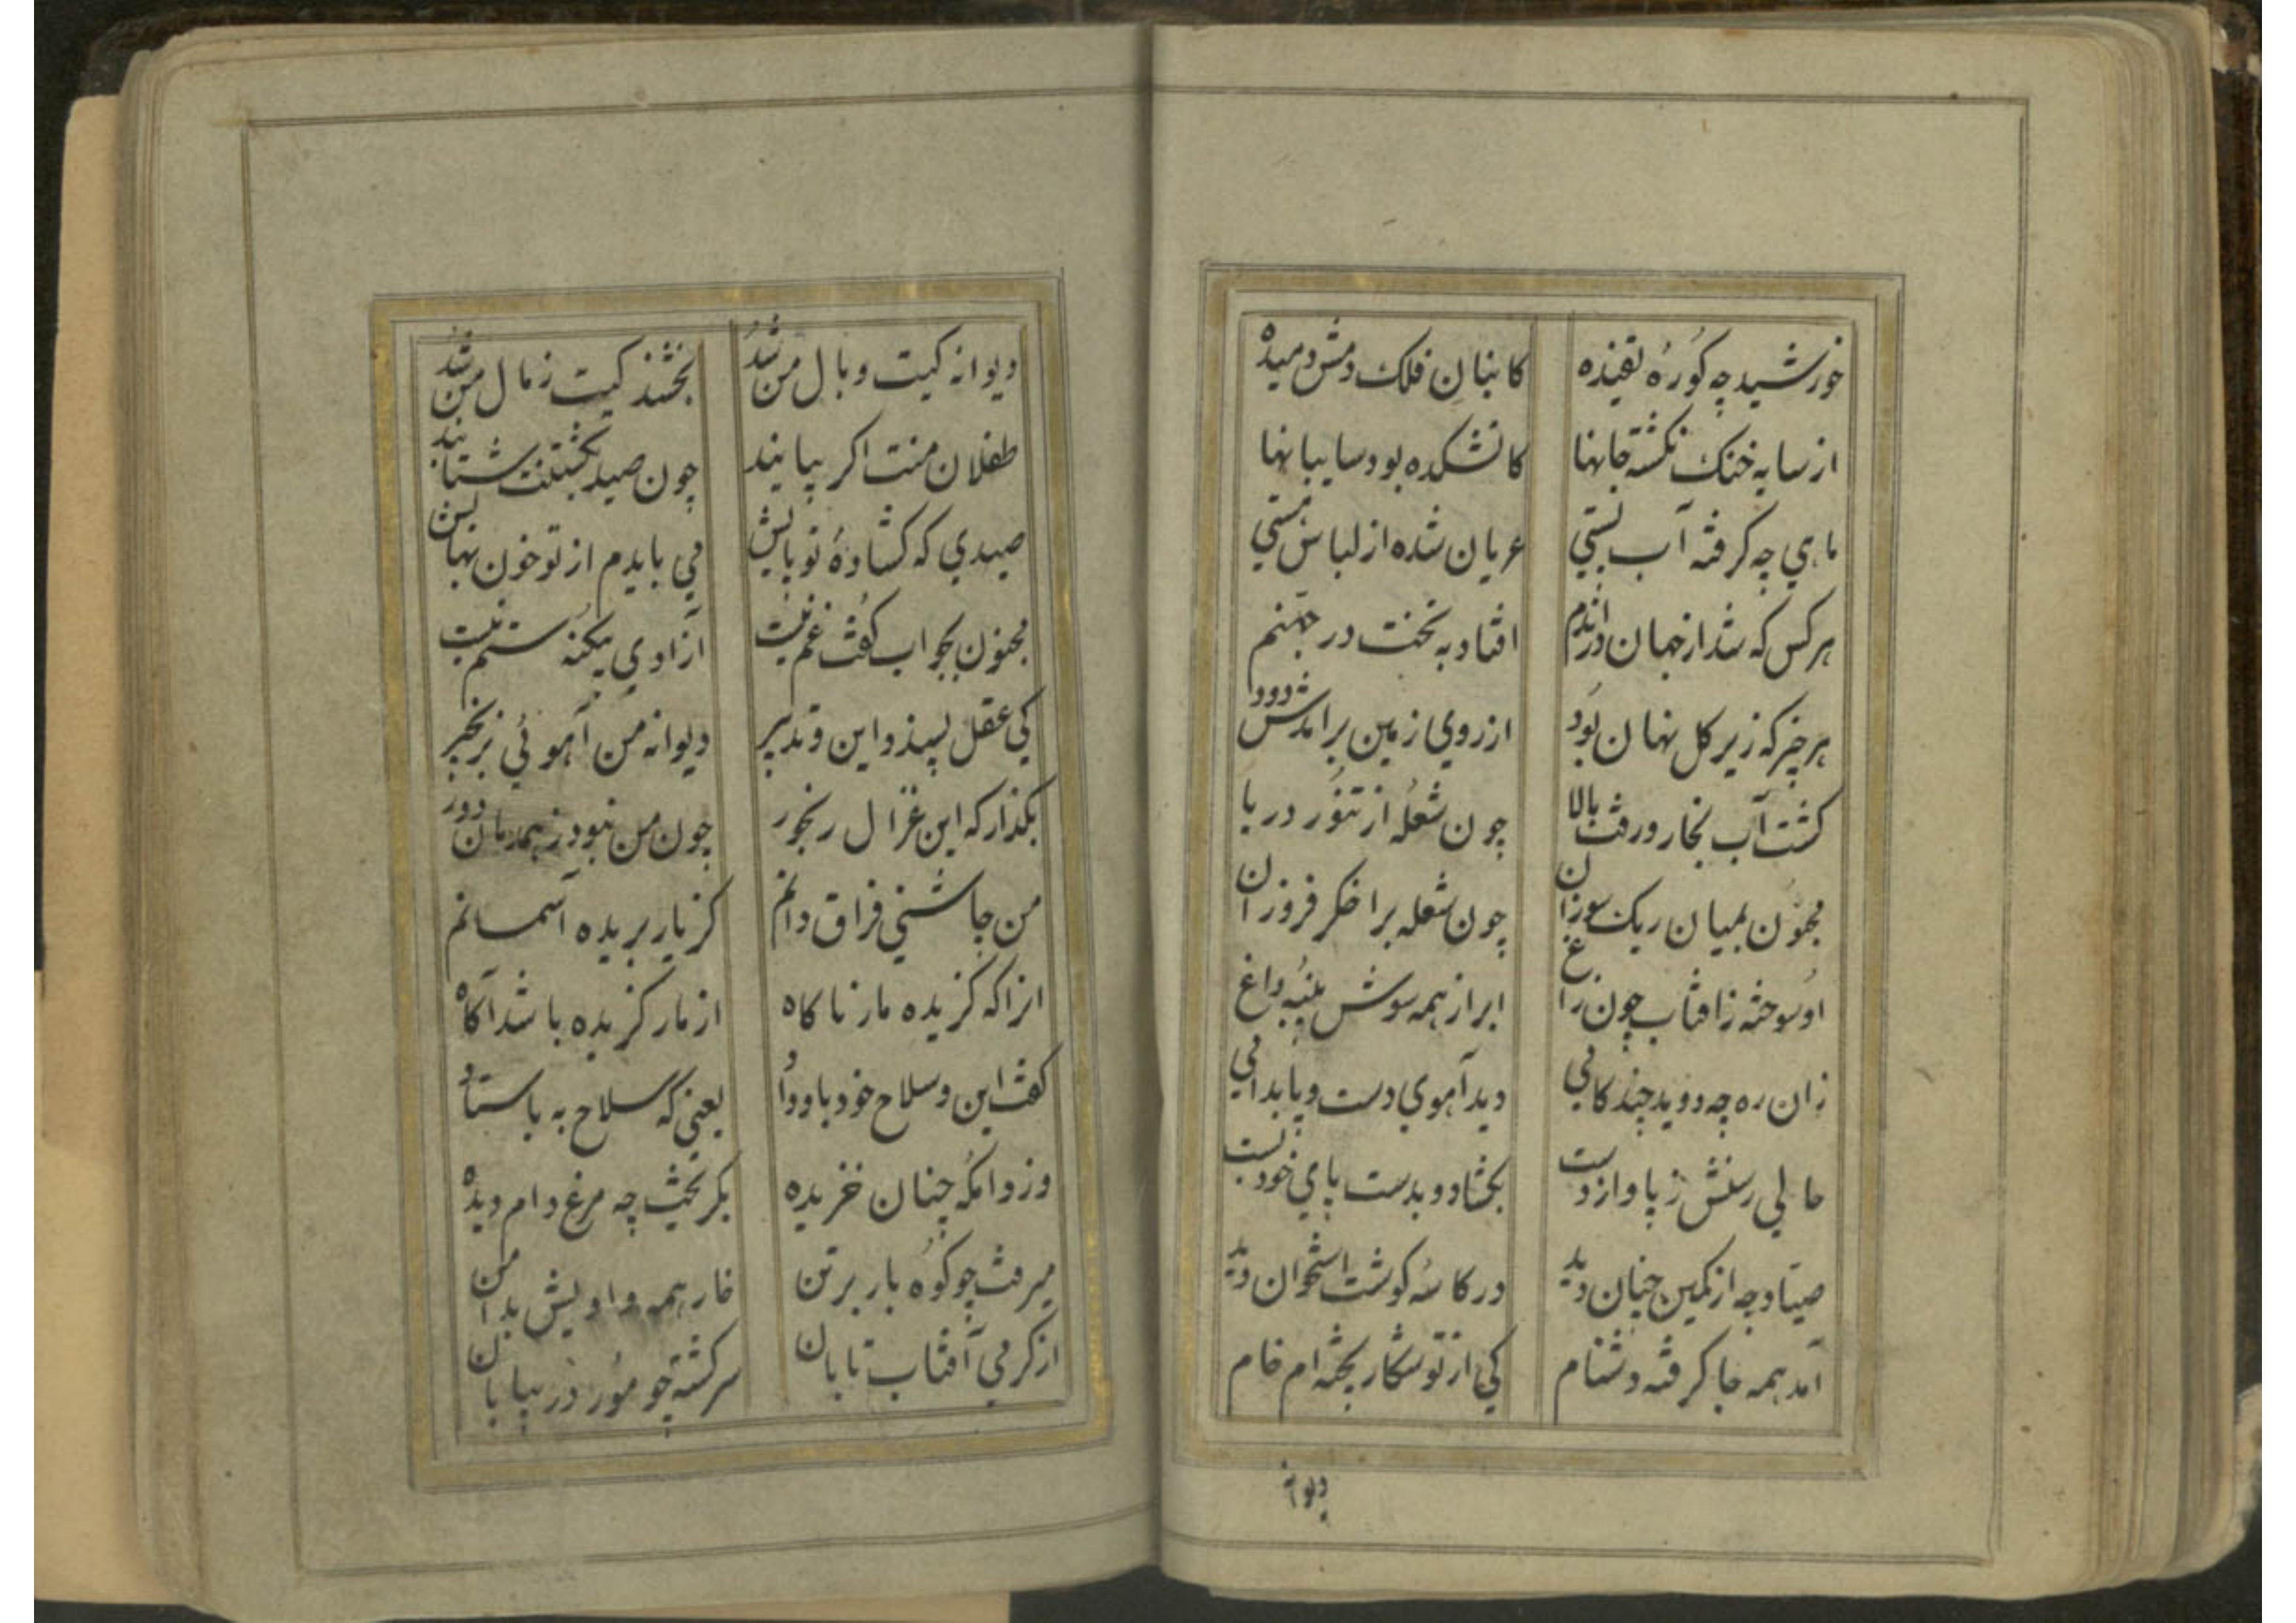 خورشید چه کورهٔ تفیده کاینان فلک دمش دمیده
از سایه خنک نکشته جانها کاتشکده بود سایبانها
ماهی چه کرفته آب بستی عریان شده از لباس هستی
هر کس که شد از جهان در اندم افتاد به تخت در جهنم
هر چیز که زیر کل نهان بود از روی زمین برآمدش دود
کشت آب بخار و رفت بالا چون شعله از تنور دریا
مجنون بمیان ریک سوزان چون شعله بر اخکر فروزان
او سوخته ز آفتاب چون زاغ ابر از همه سوش پنبهٔ داغ
زان ره چه دوید چند کامی دید آهوی دست و پا بدامی
حالی رسنش ز پا و از دست بکشاد و بدست پای خود بست
صیاد چه از کمین چنان دید در کاسهٔ کوشت استخوان دید
آمد همه جا کرفته دشنام کی از تو شکار پخته ام خام
دیوانه
دیوانه کیت وبال من شد بخشنده کیت ز مال من شد
طفلان منت اکر بیابند چون صید بکشتنت شتابند
صیدی که کشادهٔ تو پایش می بایدم از تو خون بهایش
مجنون بجواب کفت غم نیست آزادی یکنه ستم نیست
کی عقل پسندد این و تدبیر دیوانه من آهوئی بزنجیر
بکذار که این غزال رنجور چون من نبود ز همدمان دور
من چاشنی فراق دانم کز یار بریده آسمانم
انرا که کزیده مار ناکاه از مار کزیده باشد آکاه
کفت این و سلاح خود باو داد یعنی که سلاح به باستاد
وز دامکه چنان خزیده بکریخت چه مرغ دام دیده
میرفت چو کوه بار بر تن خار همه وادیش بدامن
از کرمی آفتاب تابان سرکشته چو مور در بیابان